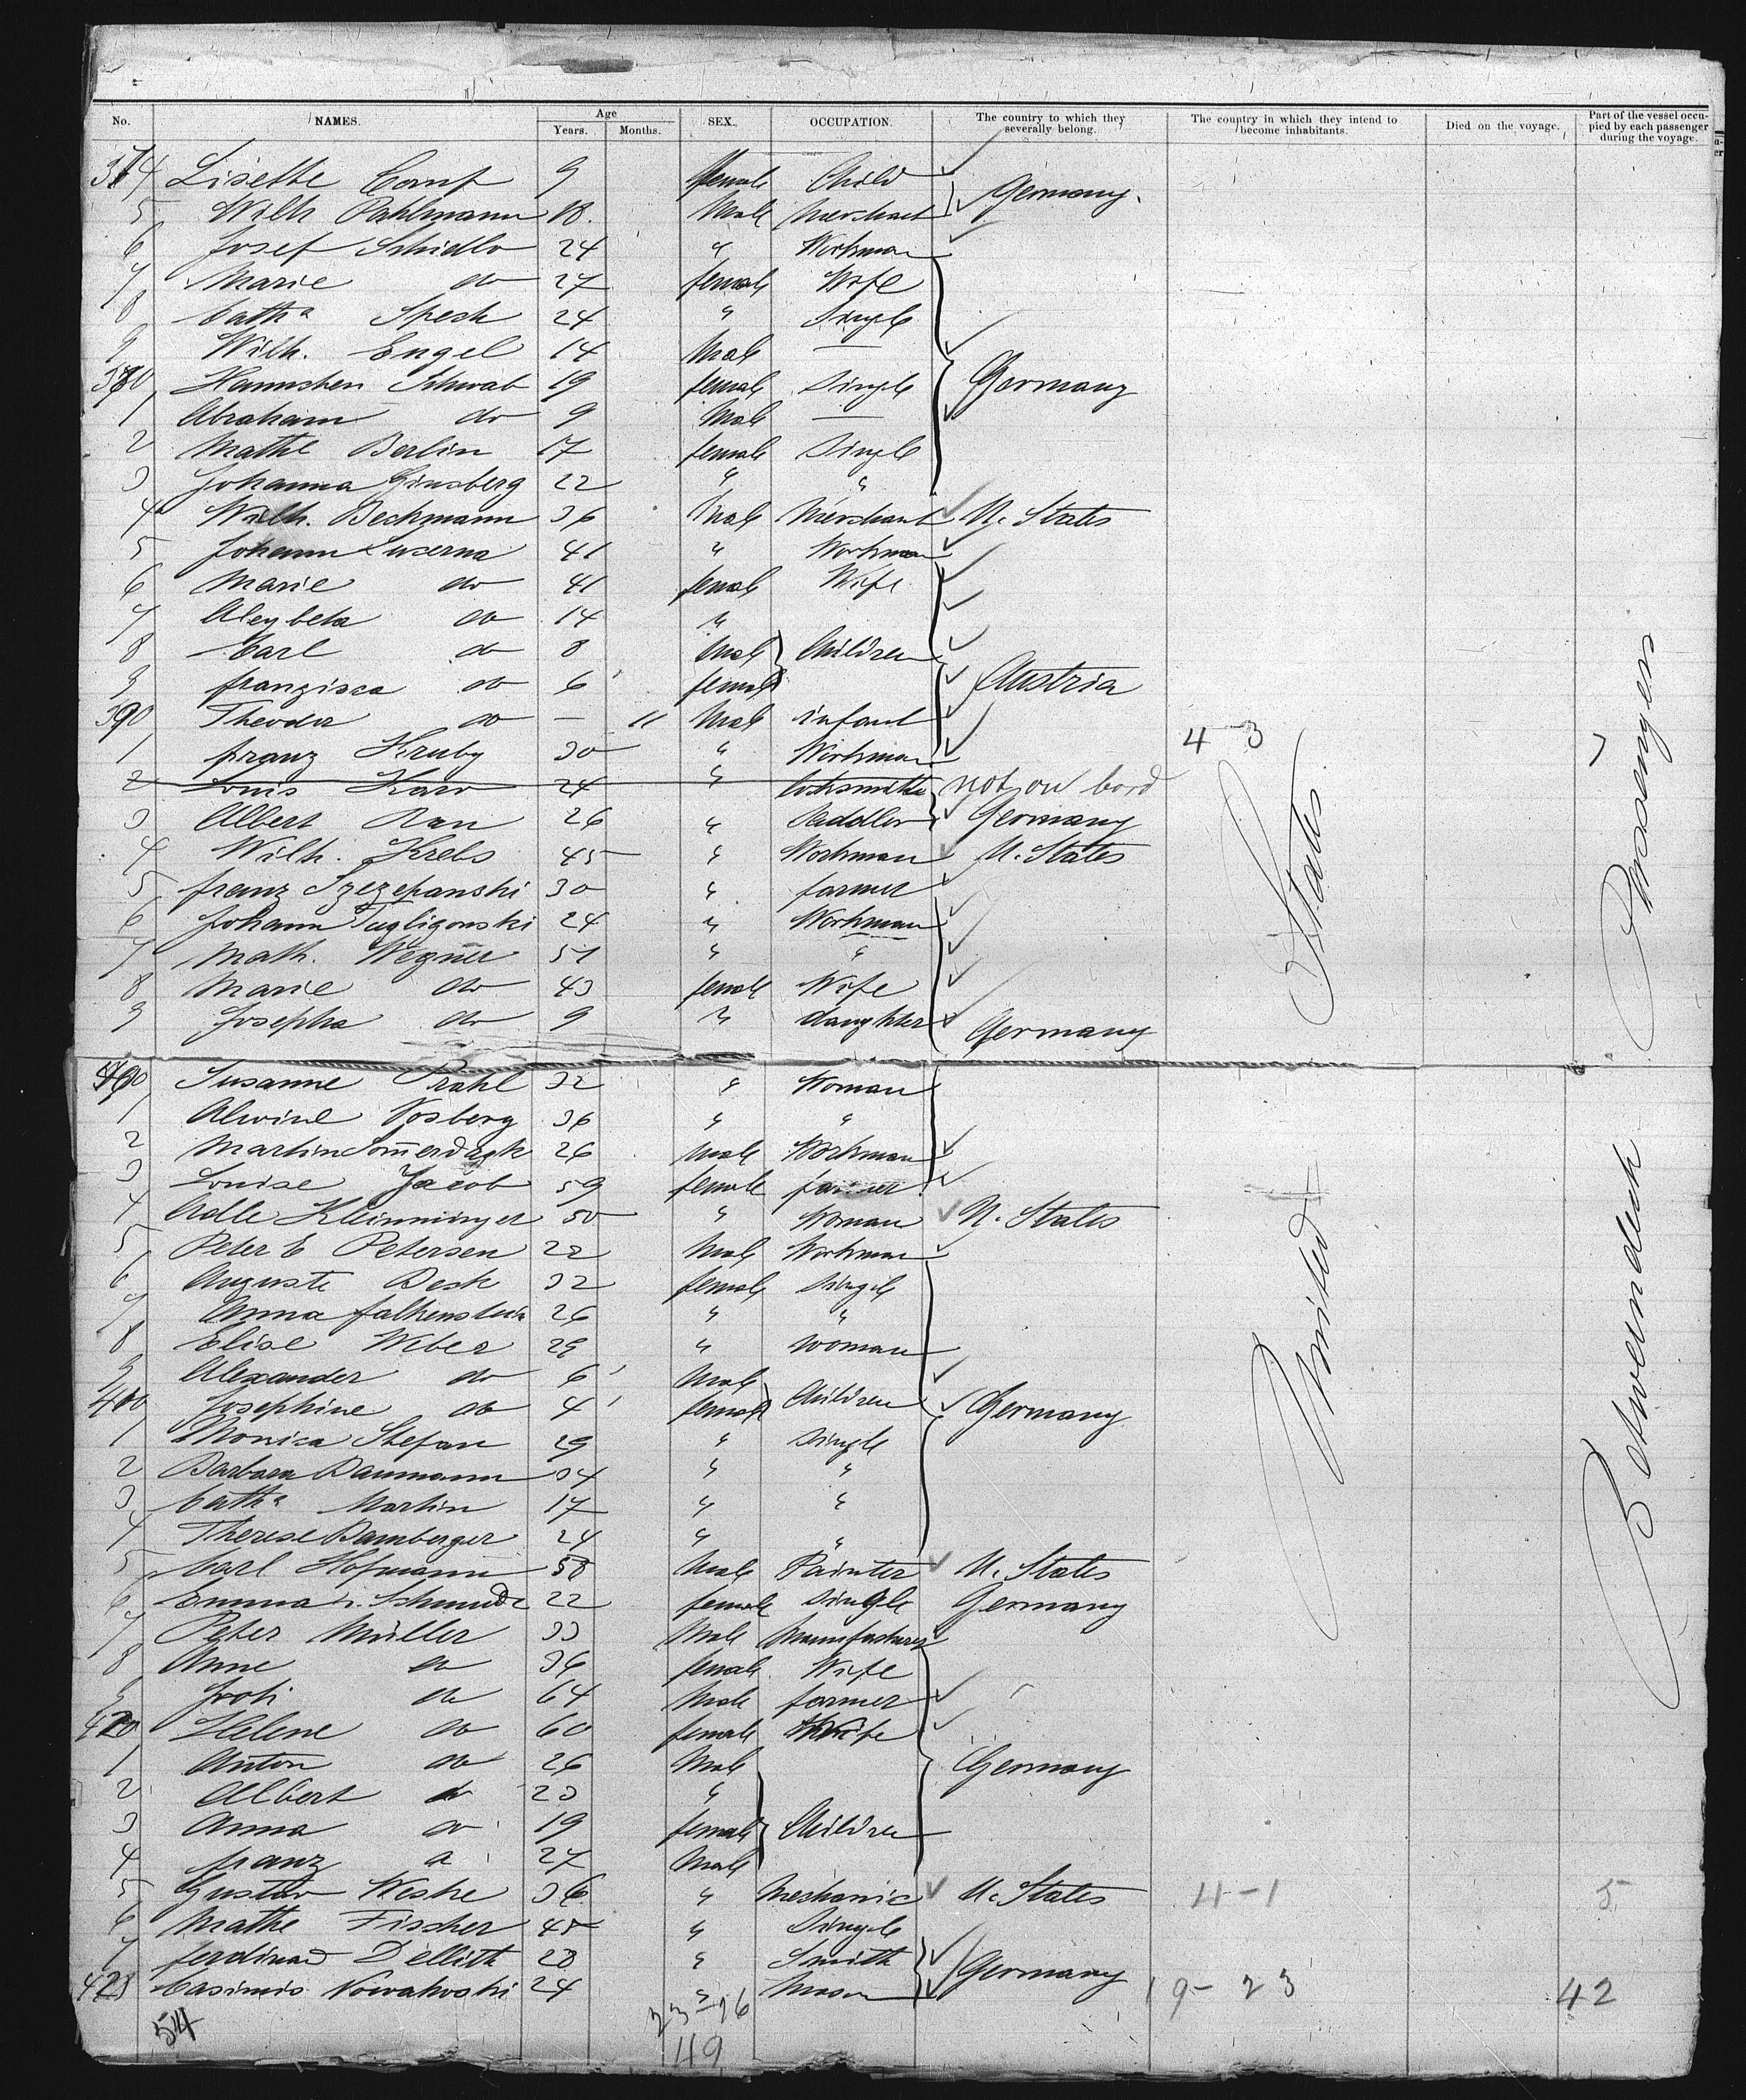 No. NAMES. Age Years. Months. SEX. OCCUPATION. The country to which they severally belong. The country in which they intend to become inhabitants. Died on the voyage. Part of the vessel occupied by each passenger during the voyage.
374 Lisette 9 female Child
5 Wilh Pahlmann 18. Male Merchant Germany.
6 Josef Schidlo 24 " Workman
7 Marie do 27 female Wife
8 Cath a Spech 24 " Single
9 Wilh. Engel 14 Male —
380 Hannchen Schwab 19 female Single Germany
1 Abraham do 9 Male —
2 Mathe Berlin 17 female Single
3 Johanna Ginsberg 22 " "
4 Wilh. Beckmann 36 Male Merchant U. States
5 Johann Lucerna 41 " Workman
6 Marie do 41 female Wife
7 do 14 "
8 Carl do 8 Male Children
9 Franzisca do 6 female Austria
390 Theodor do — 11 Male infant
1 Franz Hruby 30 " Workman 4-3
2 Louis Karo 24 " Locksmith not on bord
3 Albert Rau 26 " Saddler Germany
4 Wilh. Krebs 45 " Workman U. States
5 Franz Szezepanski 30 " farmer
6 Johann 24 " Workman
7 Math. Wegner 51 " "
8 Marie do 43 female Wife
9 Josepha do 9 " daughter Germany
400 Susanne Prahl 32 " Woman
1 Alwine Vosberg 36 " "
2 Martin 26 male Workman
3 Louise Jacob 59 female farmer
4 Adle Kleinminger 50 " Woman U. States
5 Peter C Petersen 22 Male Workman
6 Auguste Desk 32 female single
7 Anna Falkenstein 26 " "
8 Elise Weber 29 " woman
9 Alexander do 6 Male
410 Josephine do 4 female Children Germany
1 Monica Stefan 29 " single
2 Barbara Baumann 34 " "
3 Cath a Martin 17 " "
4 Therese Bamberger 24 " "
5 Carl Hofmann 58 Male Painter U. States
6 Emma v. Schmidt 22 female single Germany
7 Peter Müller 33 Male Manufacturer
8 Anne do 36 female Wife
9 do 64 Male farmer
420 Helene do 60 female Wife
1 Anton do 26 Male Germany
2 Albert do 23 "
3 Anna do 19 female Children
4 Franz do 27 Male
5 Gustav Weske 36 " Mechanic U. States 4-1 5
6 Mathe Fischer 45 " Single
7 Ferdinand Dellith 28 " Smith Germany
428 Casimis Nowakoski 24 " Mason 19-23 42
54 23-26
49
United States
Betweendeck Passengers